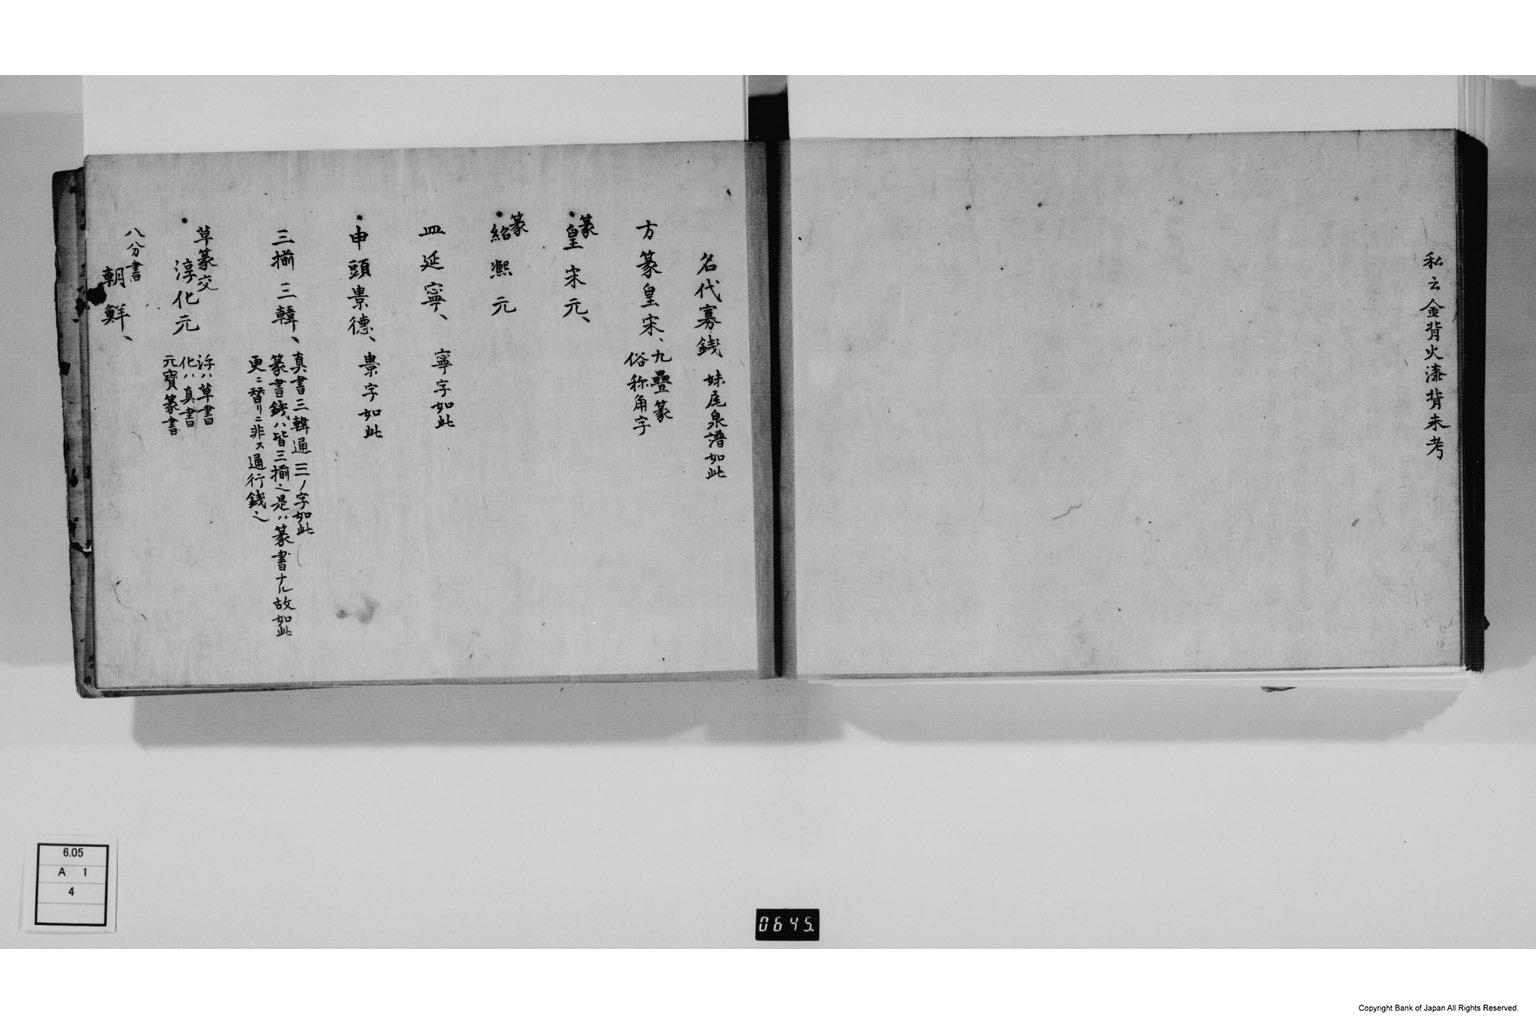 私云金背火漆背未考
名代寡銭 妹尾泉譜如此
方篆皇宋、九疊篆
俗称角字
篆
皇宋元、
篆
紹熙元
皿延寧、 寧字如此
申頭景徳、景字如此
三揃三韓、真書三韓通三ノ字如此
篆書銭ハ皆三揃之是ハ篆書ナル故如此
更ニ替リニ非ス通行銭之
草篆交
淳化元 淳ハ草書
化ハ真書
元寶篆書
八分書
朝鮮、
6.05
A 1
4
0645.
Copyright Bank of Japan All Rights Reserved.